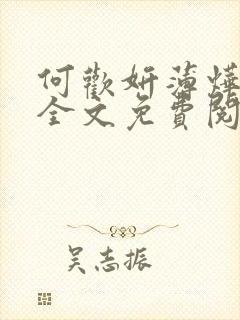 何歡妍薄燁
全文免費閱
吴志振